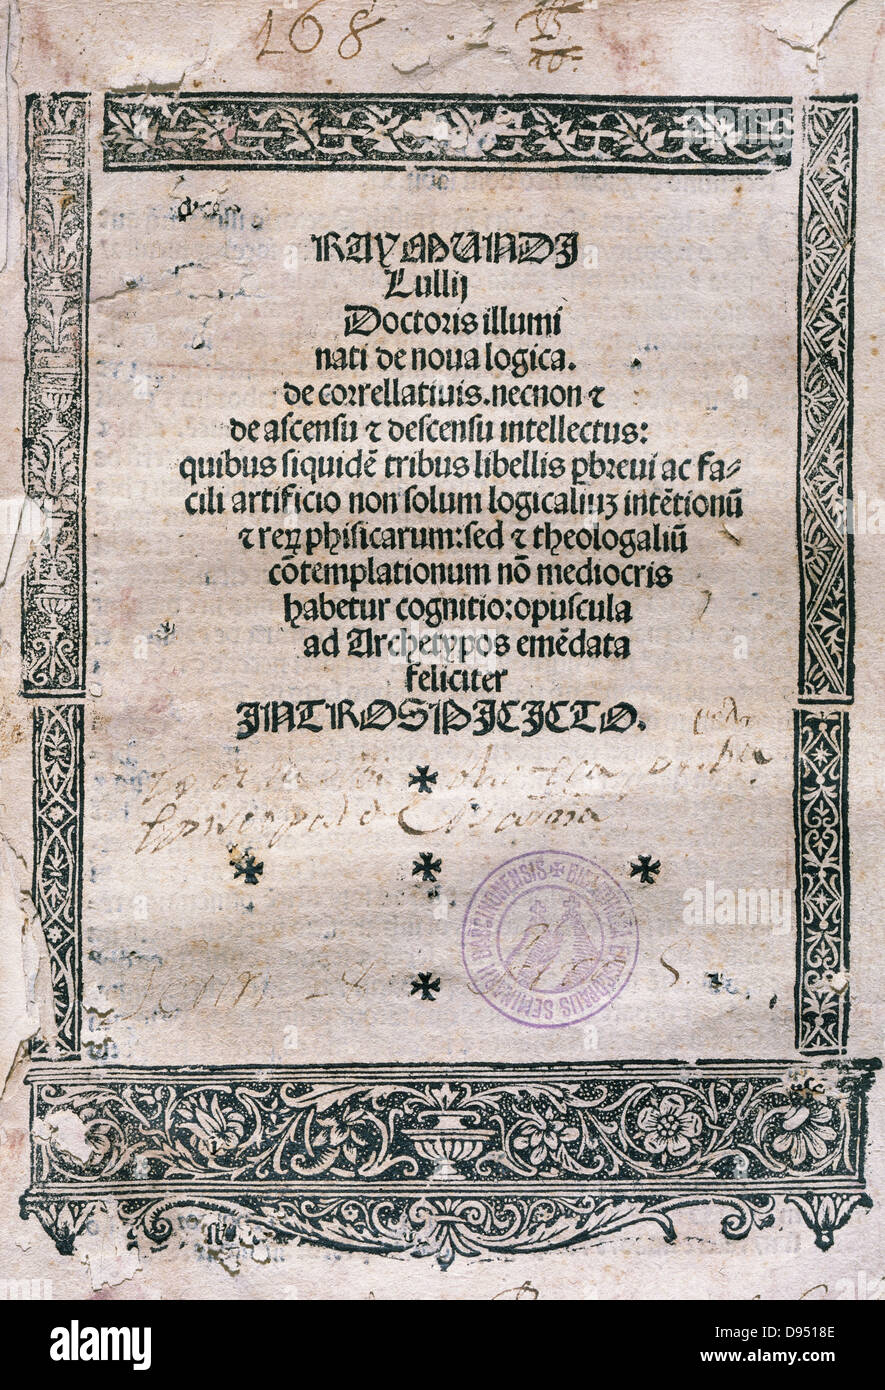 168
RAYMUNDI
Lullij
Doctoris illumi
nati de noua logica.
de correllatiuis.necnon ⁊
de ascensu ⁊ descensu intellectus:
quibus siquidē tribus libellis ꝑbreui ac fa⸗
cili artificio non solum logicaliuꝫ intētionū
⁊ reꝝ phisicarum:sed ⁊ theologaliū
cōtemplationum nō mediocris
habetur cognitio:opuscula
ad Archetypos emēdata
feliciter
INTROSPICICTO.
Episcopal de Barna
BIBLIOTHECA EPISCOPALIS SEMINARII BARCINONENSIS
alamy
alamy
Image ID: D9518E
www.alamy.com